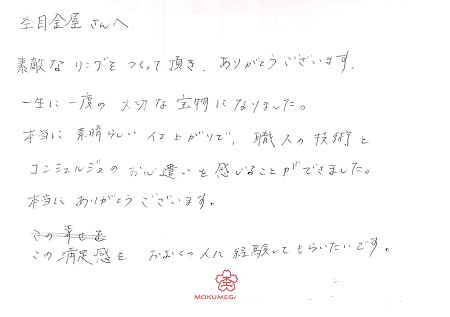 杢目金屋さんへ
素敵なリングをつくって頂き、ありがとうございます。
一生に一度の大切な宝物になりました。
本当に素晴らしい仕上がりで、職人の技術と
コンシェルジュのお心遣いを感じることができました。
本当にありがとうございます。
この幸せを
この満足感をおおくの人に経験してもらいたいです。
MOKUMEGA